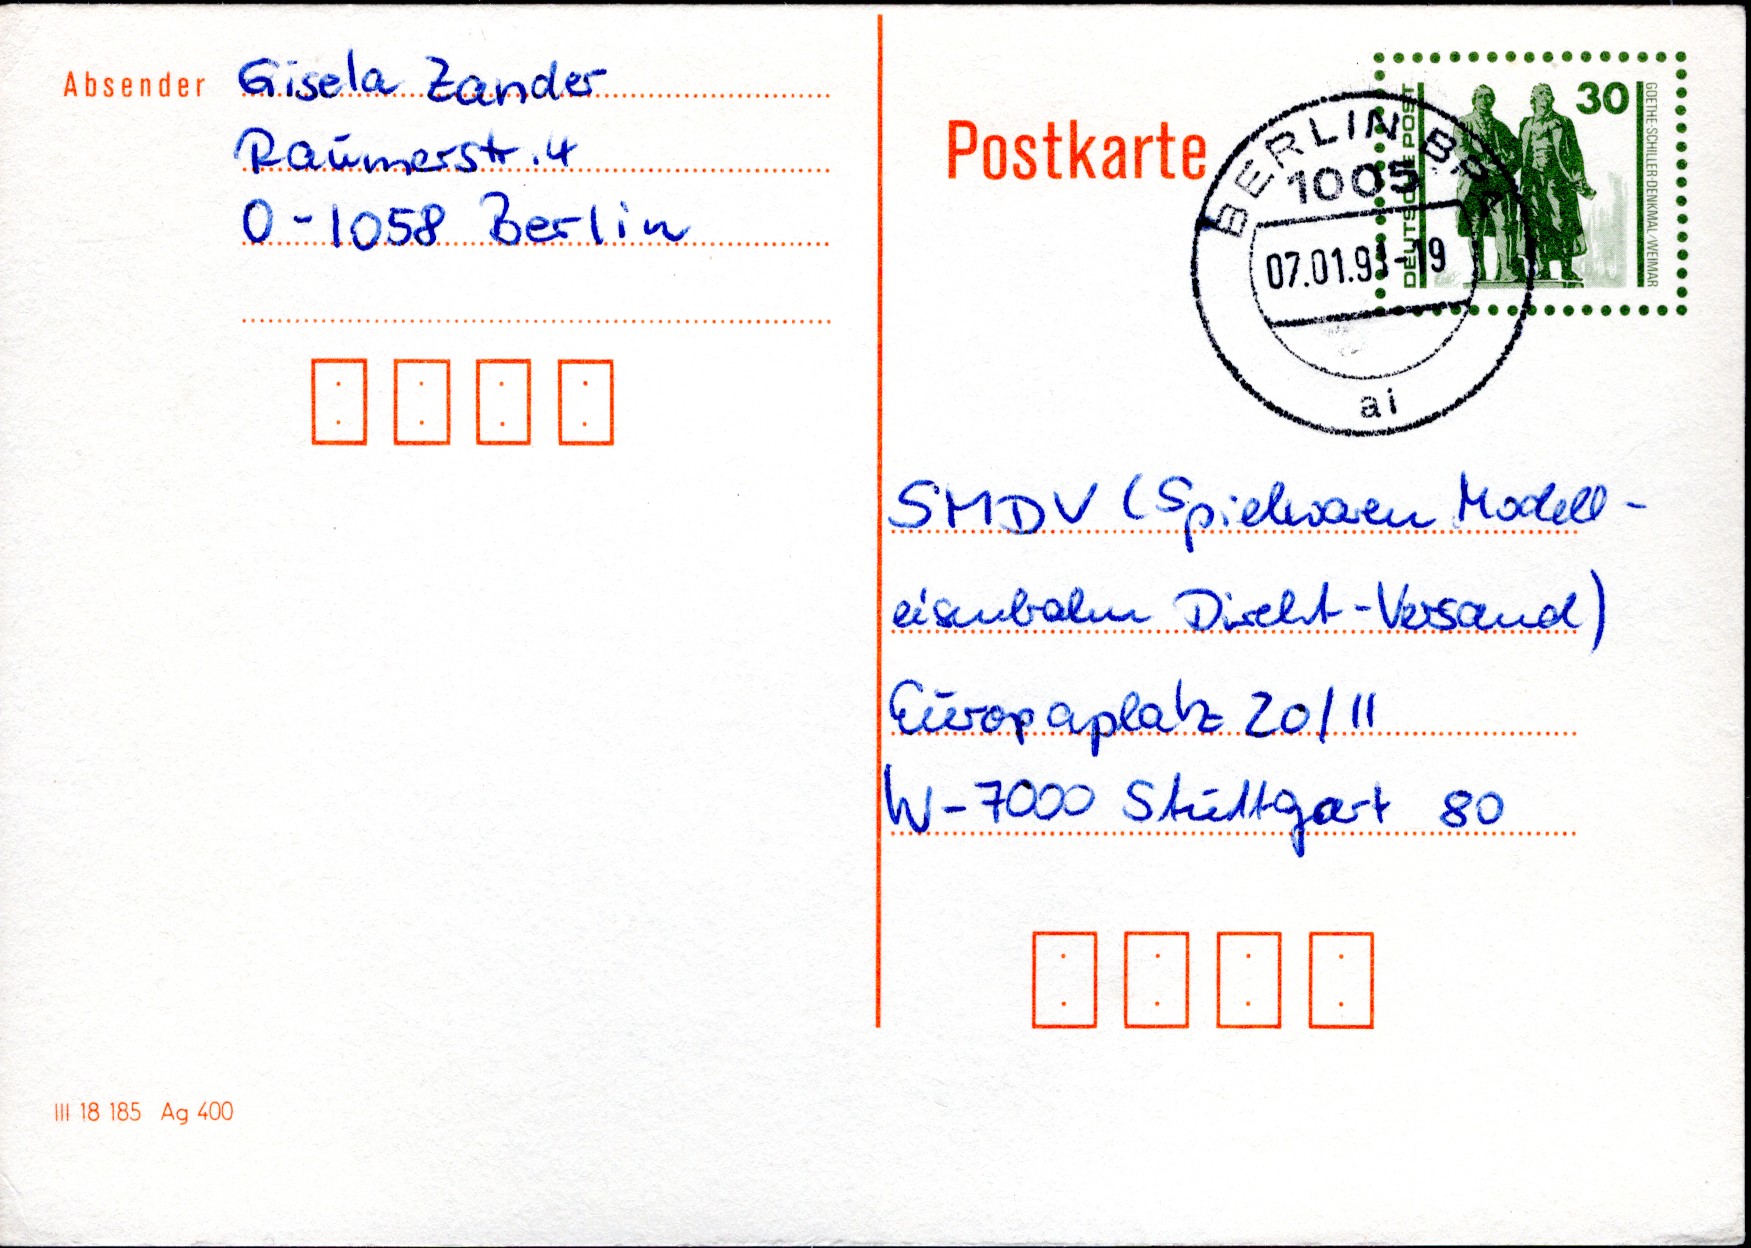 Absender Gisela Zander
Raumerstr. 4
O-1058 Berlin
Postkarte
DEUTSCHE POST
30
GOETHE-SCHILLER-DENKMAL/WEIMAR
BERLIN
1005
07.01.93-19
ai
SMDV (Spielwaren Modell-
eisenbahn Direkt-Versand)
Europaplatz 20/II
W-7000 Stuttgart 80
III 18 185 Ag 400